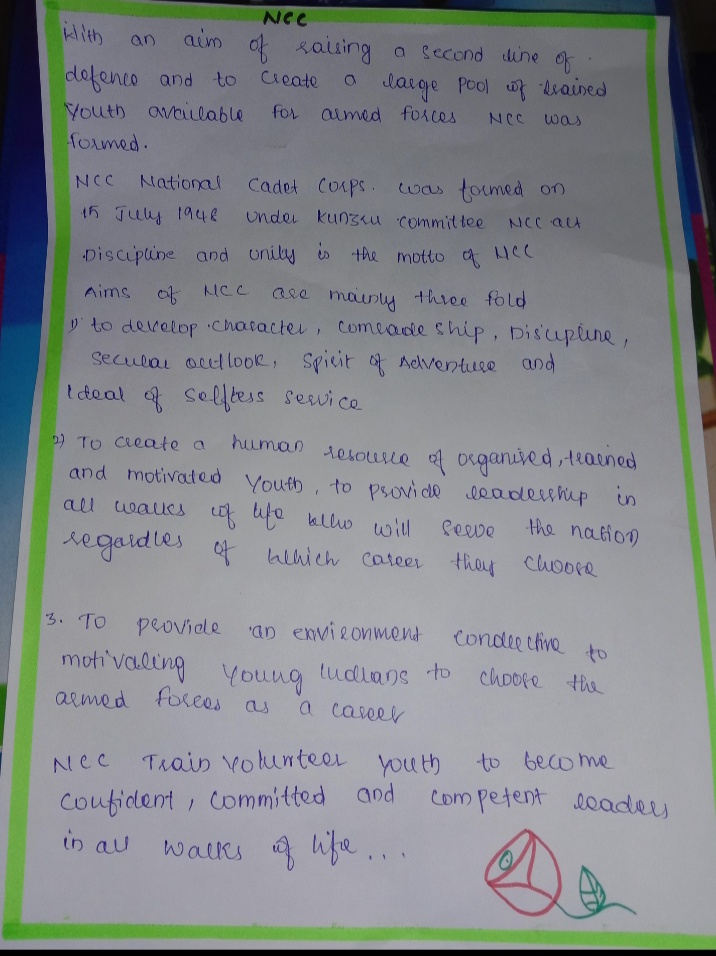 NCC
With an aim of raising a second line of
defence and to create a large pool of trained
Youth available for armed forces NCC was
formed.
NCC National Cadet Corps. was formed on
15 July 1948 under kunzru committee NCC act
Discipline and unity is the motto of NCC
Aims of NCC are mainly three fold
1) to develop character, comrade ship, Discipline,
Secular outlook, Spirit of Adventure and
Ideal of Selfless service
2) To create a human resource of organised, trained
and motivated Youth, to provide leadership in
all walks of life who will serve the nation
regardles of which career they choose
3. To provide an environment conductive to
motivating Young Indians to choose the
armed forces as a career
NCC Train volunteer youth to become
confident, committed and competent leaders
in all walks of life...